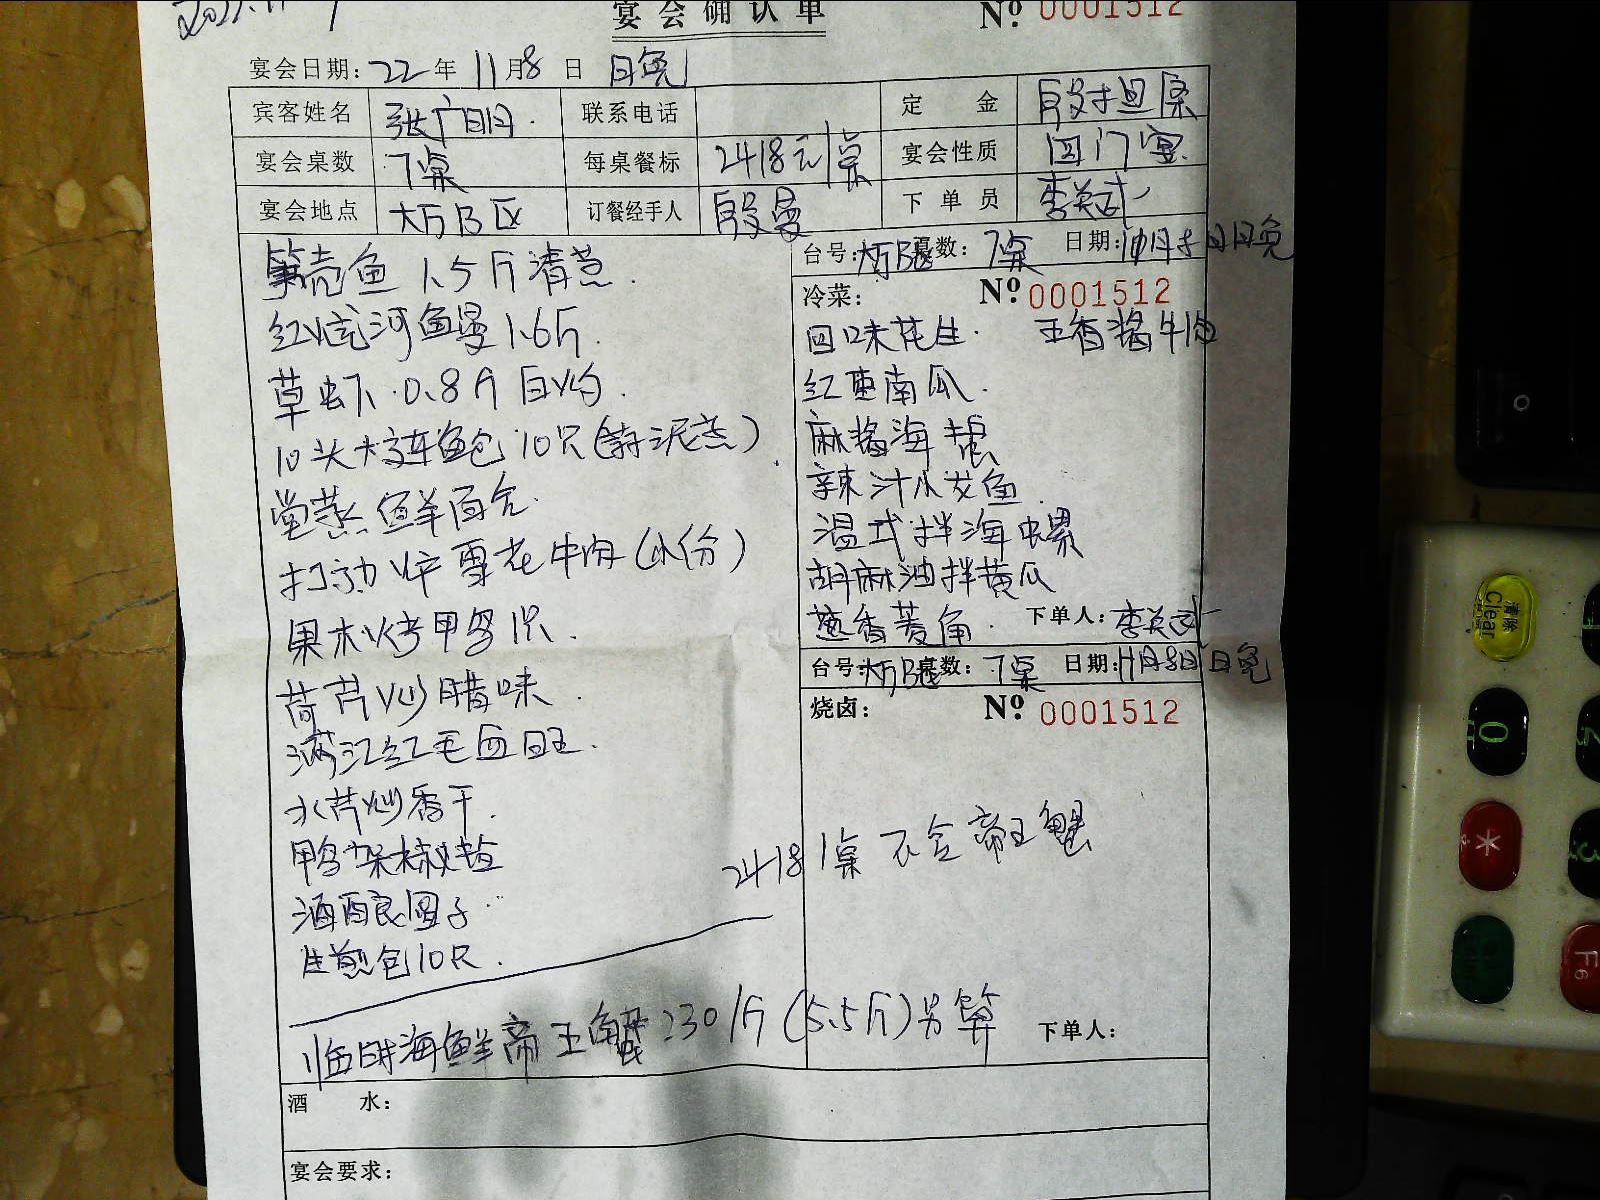 宴会确认单 Nº 0001512
宴会日期：22年11月8日 日晚
宾客姓名 张广明 联系电话 定金 段担保
宴会桌数 7桌 每桌餐标 2418元/桌 宴会性质 回门宴
宴会地点 大厅B区 订餐经手人 段曼 下单员 李英武
台号：大厅B区 桌数：7桌 日期：11月8日日晚
笋壳鱼1.5斤清蒸
冷菜： Nº 0001512
回味花生 五香酱牛肉
红烧河鳗1.6斤
红枣南瓜
草虾0.8斤白灼
麻酱海蜇
10头大连鲍10只(蒜泥蒸)
辣汁小龙鱼
堂蒸鲜百合
温式拌海螺
雪花牛肉(小份)
胡麻油拌黄瓜
果木烤甲鸟1只
葱香菱角 下单人：李英武
台号：大厅B区 桌数：7桌 日期：11月8日日晚
荷芹炒腊味
烧卤： Nº 0001512
满江红毛血旺
水芹炒香干
鸭架椒盐
2418/桌 不含帝王蟹
酒酿圆子
生煎包10只
临时海鲜帝王蟹230/斤(5.5斤)另算
下单人：
酒水：
宴会要求：